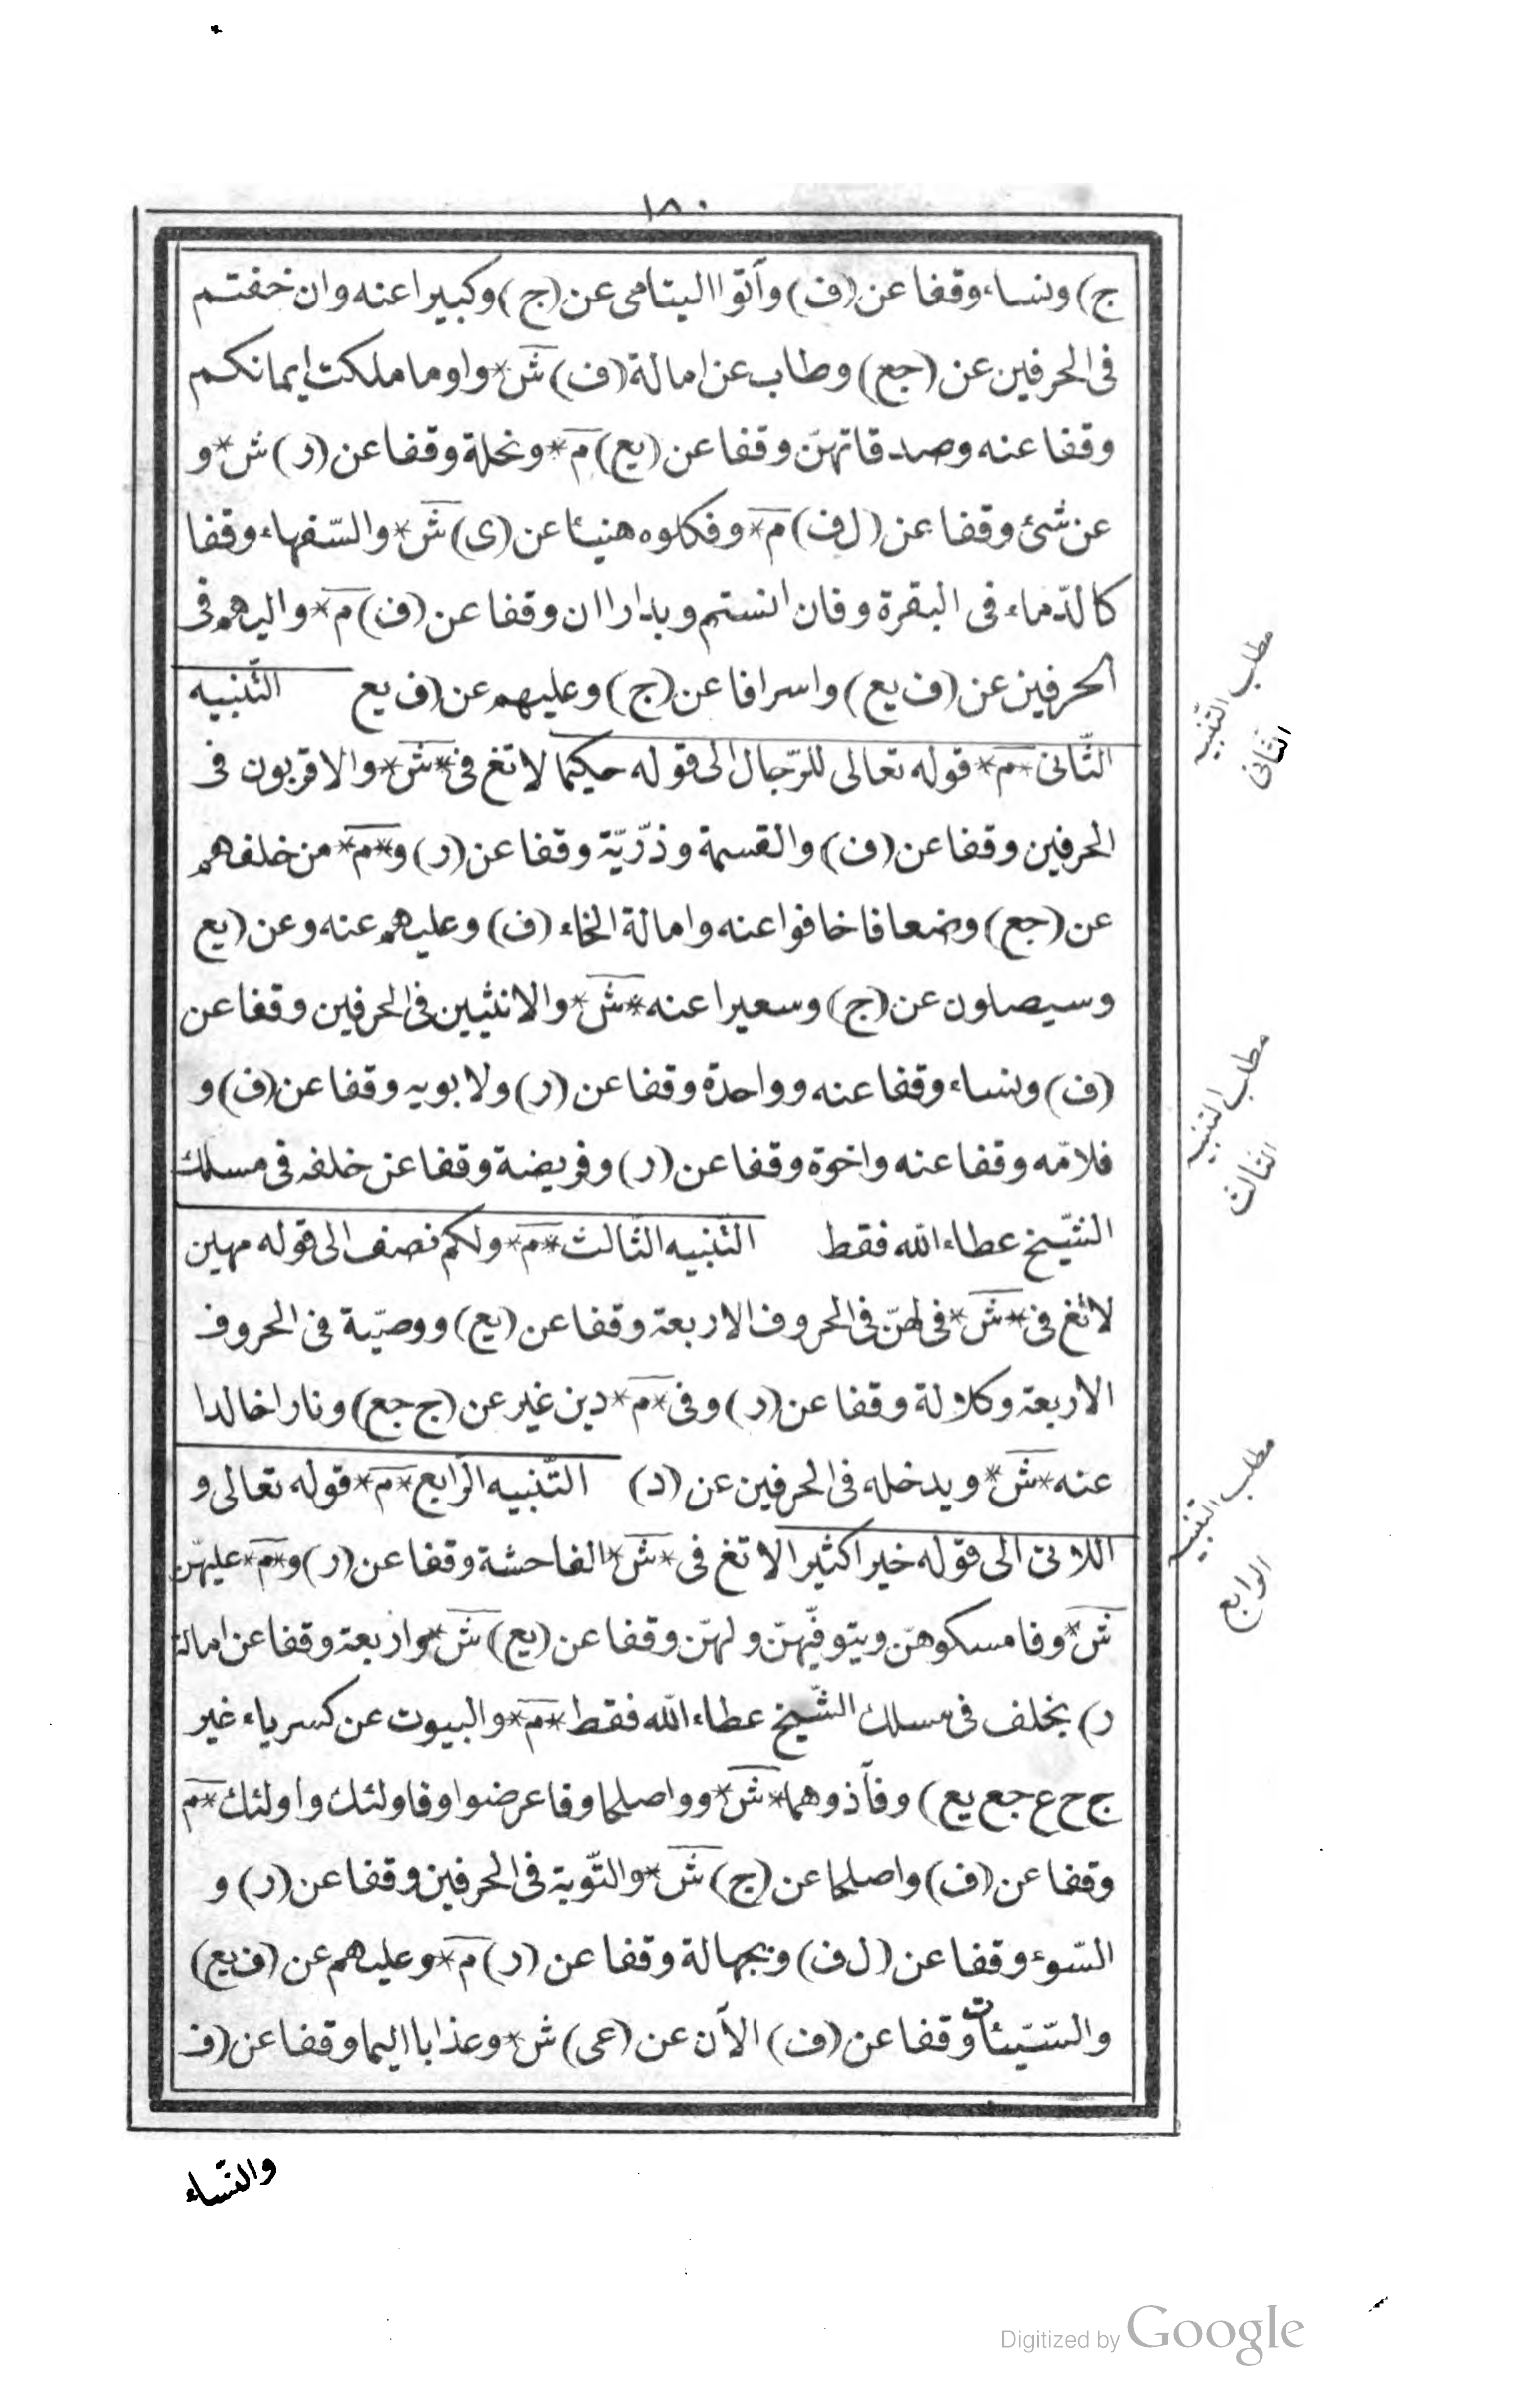 ١٨٠
ج) ونساء وقفا عن (ف) وآتوا اليتامى عن (ج) وكبيرا عنه وان خفتم
فى الحرفين عن (جع) وطاب عن امالة (ف) ش* واو ما ملكت ايمانكم
وقفا عنه وصدقاتهنّ وقفا عن (يع) م* ونحلة وقفا عن (ر) ش* و
عن شئ وقفا عن (ل ف) م* وفكلوه هنيئا عن (ى) ش* والسّفهاء وقفا
كالدّماء فى البقرة وفان انستم وبدارا ان وقفا عن (ف) م* واليهم فى
الحرفين عن (ف يع) واسرافا عن (ج) وعليهم عن (ف يع التّنبيه
الثّانى *م* قوله تعالى للرّجال الى قوله حكيما لا تغ فى *ش* والاقربون فى
الحرفين وقفا عن (ف) والقسمة وذرّيّة وقفا عن (ر) و*م* من خلفهم
عن (جع) وضعافا خافوا عنه وامالة الخاء (ف) وعليهم عنه وعن (يع
وسيصلون عن (ج) وسعيرا عنه *ش* والانثيين فى الحرفين وقفا عن
(ف) ونساء وقفا عنه وواحدة وقفا عن (ر) ولابويه وقفا عن (ف) و
فلامّه وقفا عنه واخوة وقفا عن (ر) وفريضة وقفا عن خلفه فى مسلك
الشّيخ عطاء الله فقط التّنبيه الثّالث *م* ولكم نصف الى قوله مهين
لا تغ فى *ش* فى لهنّ فى الحروف الاربعة وقفا عن (يع) ووصيّة فى الحروف
الاربعة وكلالة وقفا عن (ر) وفى *م* دين غير عن (ج جع) ونارا خالدا
عنه *ش* ويدخله فى الحرفين عن (د) التّنبيه الرّابع *م* قوله تعالى و
اللاتى الى قوله خيرا كثيرا لا تغ فى *ش* الفاحشة وقفا عن (ر) و*م* عليهنّ
ش* وفامسكوهنّ ويتوفّيهنّ ولهنّ وقفا عن (يع) ش* واربعة وقفا عن امالة
ر) بخلف فى مسلك الشّيخ عطاء الله فقط *م* والبيوت عن كسر ياء غير
ج ح ع جع يع) وفآذوهما *ش* وواصلحا وفاعرضوا وفاولئك واولئك *م
وقفا عن (ف) واصلحا عن (ج) ش* والتّوبة فى الحرفين وقفا عن (ر) و
السّوء وقفا عن (ل ف) وبجهالة وقفا عن (ر) م* وعليهم عن (ف يع)
والسّيّئات وقفا عن (ف) الآن عن (عى) ش* وعذابا اليما وقفا عن (ف
مطلب التّنبيه
الثّانى
مطلب التنبيه
الثّالث
مطلب التنبيه
الرابع
والنّساء
Digitized by Google